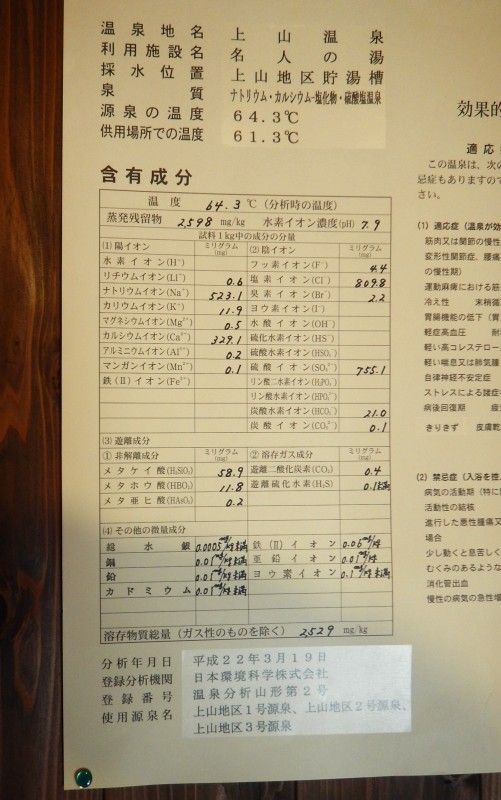 温泉地名 上山温泉
利用施設名 名人の湯
採水位置 上山地区貯湯槽
泉質 ナトリウム・カルシウム-塩化物・硫酸塩温泉
源泉の温度 64.3℃
供用場所での温度 61.3℃
含有成分
温度 64.3℃(分析時の温度)
蒸発残留物 2598 mg/kg 水素イオン濃度(pH) 7.9
試料1kg中の成分の分量
(1)陽イオン ミリグラム(mg) (2)陰イオン ミリグラム(mg)
水素イオン(H⁺) フッ素イオン(F⁻) 4.4
リチウムイオン(Li⁺) 0.6 塩素イオン(Cl⁻) 809.8
ナトリウムイオン(Na⁺) 523.1 臭素イオン(Br⁻) 2.2
カリウムイオン(K⁺) 11.9 ヨウ素イオン(I⁻)
マグネシウムイオン(Mg²⁺) 0.5 水酸イオン(OH⁻)
カルシウムイオン(Ca²⁺) 329.1 硫化水素イオン(HS⁻)
アルミニウムイオン(Al³⁺) 0.2 硫酸水素イオン(HSO₄⁻)
マンガンイオン(Mn²⁺) 0.1 硫酸イオン(SO₄²⁻) 755.1
鉄(II)イオン(Fe²⁺) リン酸二水素イオン(H₂PO₄⁻)
リン酸水素イオン(HPO₄²⁻)
炭酸水素イオン(HCO₃⁻) 21.0
炭酸イオン(CO₃²⁻) 0.1
(3)遊離成分
①非解離成分 ミリグラム(mg) ②溶存ガス成分 ミリグラム(mg)
メタケイ酸(H₂SiO₃) 58.9 遊離二酸化炭素(CO₂) 0.4
メタホウ酸(HBO₂) 11.8 遊離硫化水素(H₂S) 0.1未満
メタ亜ヒ酸(HAsO₂) 0.2
(4)その他の微量成分
総水銀 0.0005mg/kg未満 鉄(II)イオン 0.06mg/kg
銅 0.01mg/kg未満 亜鉛イオン 0.01mg/kg
鉛 0.01mg/kg未満 ヨウ素イオン 0.1mg/kg未満
カドミウム 0.01mg/kg未満
溶存物質総量(ガス性のものを除く) 2529 mg/kg
分析年月日 平成22年3月19日
登録分析機関 日本環境科学株式会社
登録番号 温泉分析山形第2号
使用源泉名 上山地区1号源泉、上山地区2号源泉、
上山地区3号源泉
効果的
適応
この温泉は、次の
忌症もありますので
さい。
(1)適応症(温泉が効
筋肉又は関節の慢性
変形性関節症、腰痛
の慢性期)
運動麻痺における筋
冷え性 末梢循
胃腸機能の低下(胃
軽症高血圧 耐
軽い高コレステロー
軽い喘息又は肺気腫
自律神経不安定症
ストレスによる諸症
病後回復期 疲
きりきず 皮膚乾
(2)禁忌症(入浴を控
病気の活動期(特に
活動性の結核
進行した悪性腫瘍又
場合
少し動くと息苦しく
むくみのあるような
消化管出血
慢性の病気の急性増